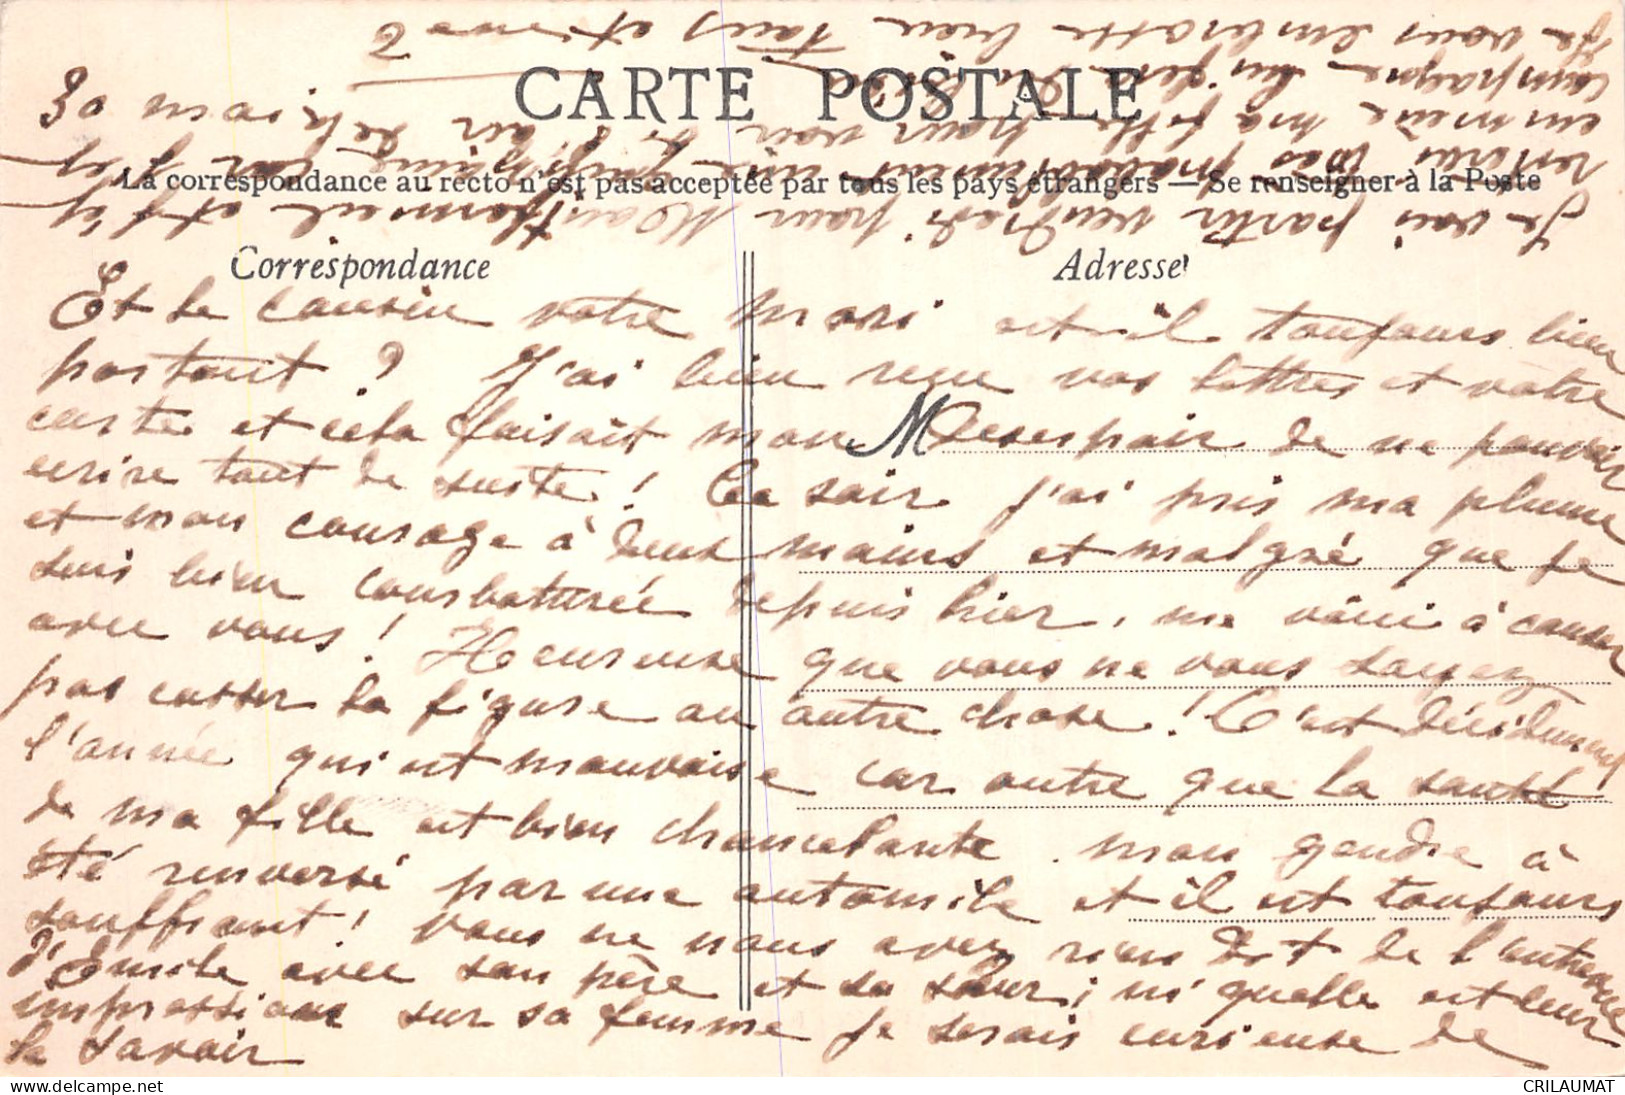 30 mai
CARTE POSTALE
La correspondance au recto n'est pas acceptée par tous les pays étrangers — Se renseigner à la Poste
Correspondance
Adresse
M
Et le cousin votre mari est-il toujours bien
portant ? J'ai bien reçu vos lettres et votre
carte et cela faisait mon desespoir de ne pouvoir
ecrire tout de suite ! Ce soir j'ai pris ma plume
et mon courage à deux mains et malgré que je
suis bien courbaturée depuis hier, me voici à causer
avec vous ! Heureuse que vous ne vous soyez
pas casser la figure ou autre chose ! C'est décidement
l'année qui est mauvaise car outre que la santé
de ma fille est bien chancelante, mon gendre à
été renversé par une automile et il est toujours
souffrant ! Vous ne nous avez rien dit de l'entrevue
d'Emile avec son père et sa sœur ; ni quelle est leur
impression sur sa femme je serais curieuse de
le savoir
Je vais partir vendredi pour
retenir mes
emmène ma fille pour voir si l'air de la
campagne lui fera
Je vous embrasse bien tous et